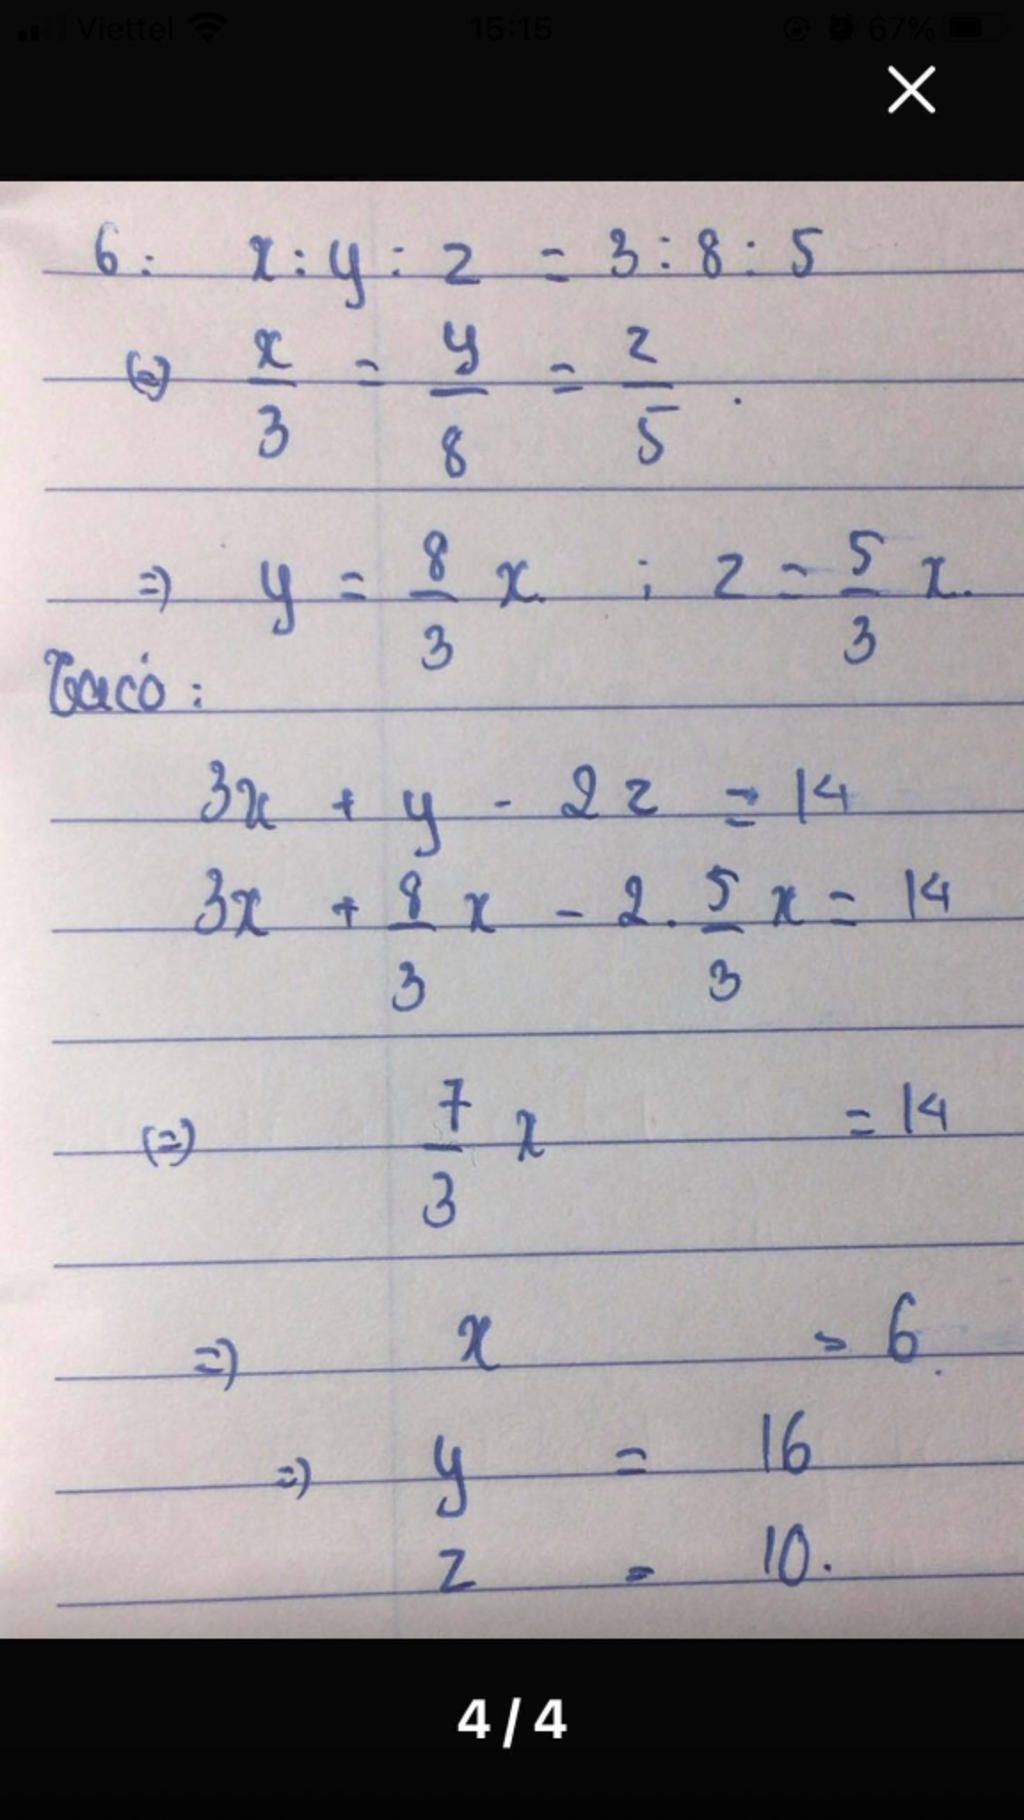 Viettel 15:15 67%
6: x : y : z = 3 : 8 : 5
(=) x/3 = y/8 = z/5 .
=) y = 8/3 x. ; z = 5/3 x.
Ta có :
3x + y - 2z = 14
3x + 8/3 x - 2. 5/3 x = 14
(=) 7/3 x = 14
=) x = 6.
=) y = 16
z = 10.
4/4